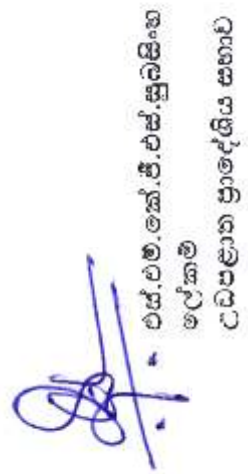 එස්.එම්.කේ.පී.එස්.සුබසිංහ
ලේකම්
උඩපළාත ප්‍රාදේශීය සභාව